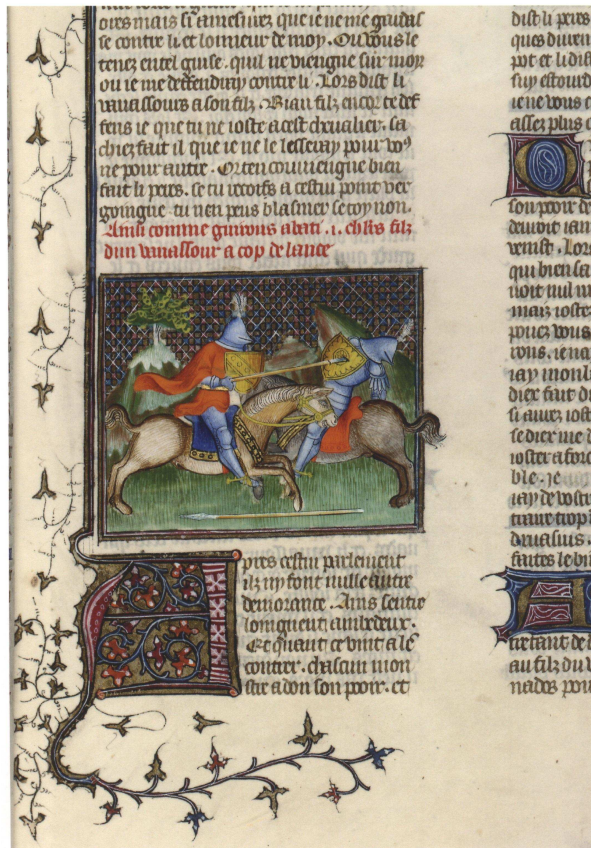 oires mais si amesurez que ie ne me gardas
se contre li. et lonneur de moy. Ou vous le
tenez en tel guise. quil ne viengne sur moy
ou ie me deffendray contre li. Lors dist li
vauassours a son filz. Biau filz encor te def
fens ie que tu ne ioste a cest cheualier. sa
chiez fait il que ie ne le lesseray pour voꝰ
ne pour autre. Or ten conuiengne bien
fait li peres. se tu recoifs a cestui point ver
goingne tu nen peus blasmer se toy non.
Ainsi comme guirons abati .i. chlrs filz
dun vauassour a cop de lance
Apres cestui parlement
ilz ny font nulle autre
demorance. Ains sentre
longnent ambedeux.
Et quant ce vint a lē
contrer. chascun mon
stre adon son pooir. et
dist li peres
ques
pot et li dist
suy estourd
ie ne vous
assez plus
son pooir de
deuoit iam
venist. Lors
qui bien sa
uoit nul
mais ioste
pouez vous
vous. ie na
iay
diex fait
si auez iost
se diex me
ioster a forc
ble. je
iay de vostre
trop
faites le bi
tretant de
au filz du v
pour